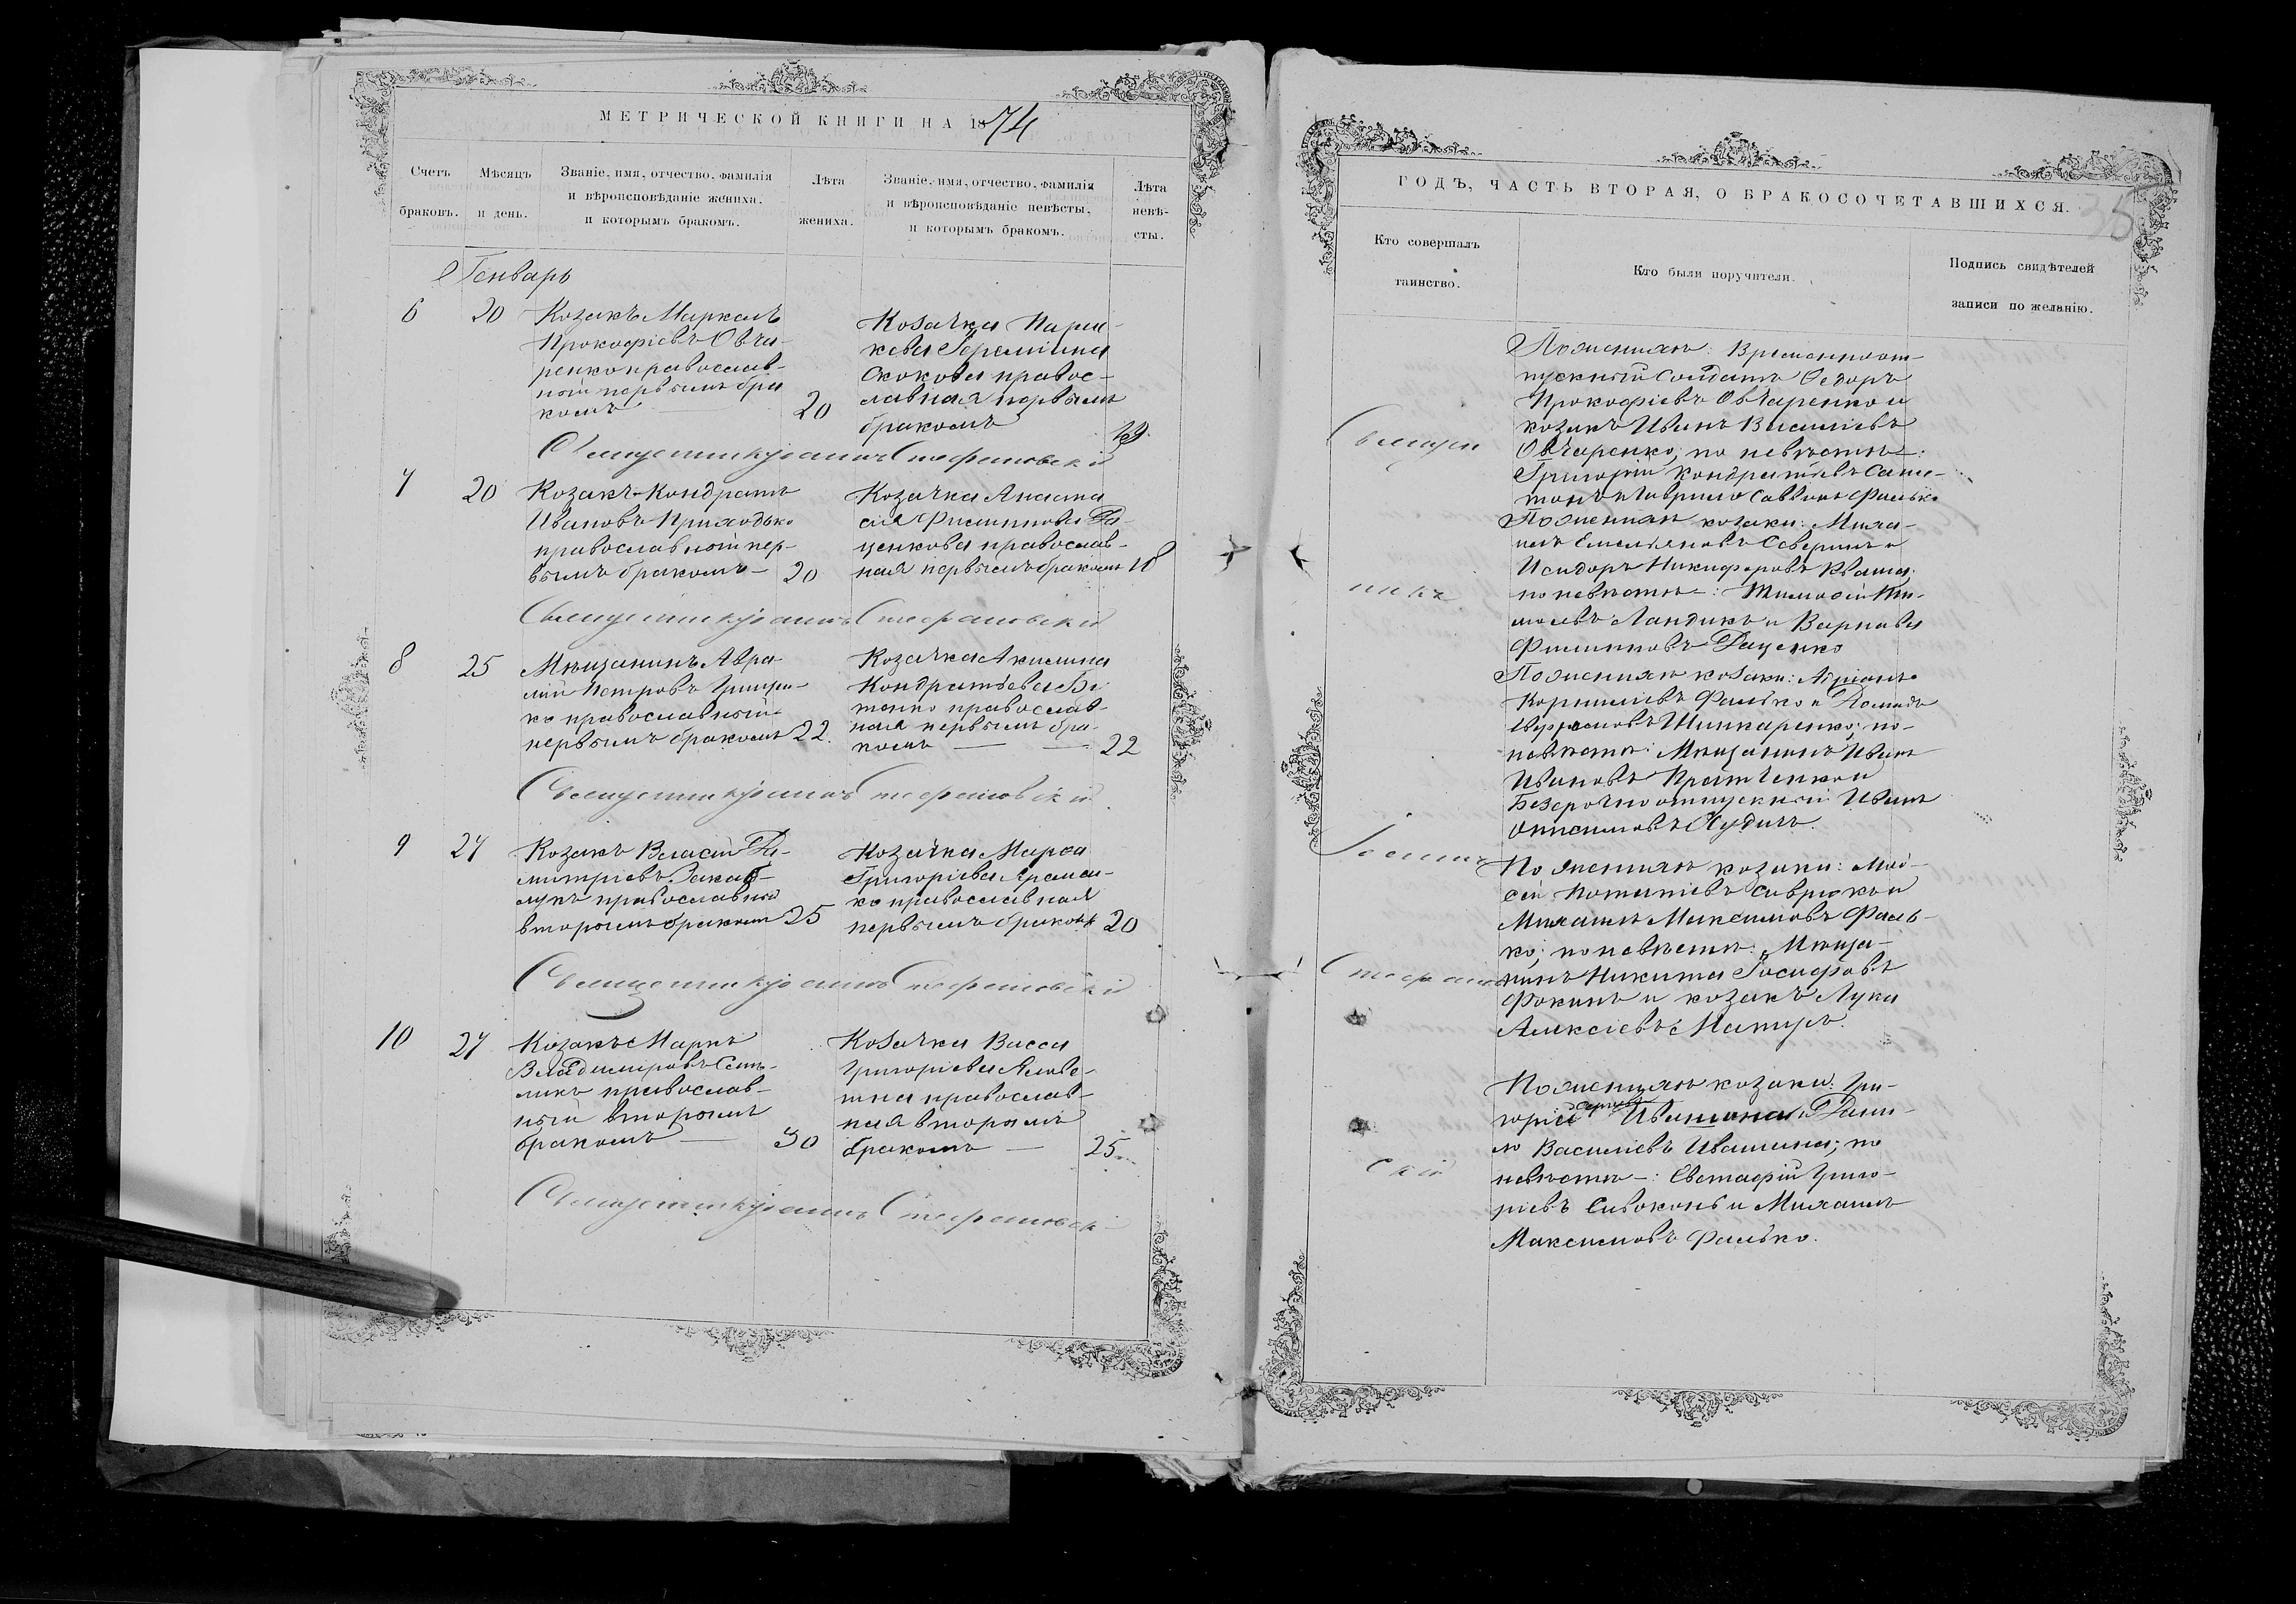 МЕТРИЧЕСКОЙ КНИГИ НА 1874
Счетъ браковъ.
Мѣсяцъ и день.
Званіе, имя, отчество, фамилія
и вѣроисповѣданіе жениха.
и которымъ бракомъ.
Лѣта жениха.
Званіе, имя, отчество, фамилія
и вѣроисповѣданіе невѣсты,
и которымъ бракомъ.
Лѣта невѣ-
сты.
Генварь
6 20
Козакъ Маркелъ
Прокофіевъ Овча-
ренко православ-
ный первымъ бра
комъ 20
Козачка Парас-
кева Іереміина
Скокова правос-
лавная первымъ
бракомъ 19.
Священникъ Іоаннъ Стефановскій
7 20
Козакъ Кондратъ
Ивановъ Приходько
православный пер-
вымъ бракомъ — 20
Козачка Анаста
сія Филиппова Да-
ценкова православ-
ная первымъ бракомъ 18
Священникъ Іоаннъ Стефановскій
8 25
Мѣщанинъ Авра-
мій Петровъ
ко православный
первымъ бракомъ 22.
Козачка Акилина
Кондратьева Бы
тенко православ-
ная первымъ бра-
комъ — — 22
Священникъ Іоаннъ Стефановскій
9 27
Козакъ Власій Ди-
митріевъ Закаб-
лукъ православный
вторымъ бракомъ 25
Козачка Марѳа
Григоріева
ко православная
первымъ бракомъ 20
Священникъ Іоаннъ Стефановскій
10 27
Козакъ Маркъ
Владиміровъ
православ-
ный вторымъ
бракомъ — 30
Козачка Васса
Григоріева
православ-
ная вторымъ
бракомъ — 25
Священникъ Іоаннъ Стефановскій
ГОДЪ, ЧАСТЬ ВТОРАЯ, О БРАКОСОЧЕТАВШИХСЯ.
35
Кто совершалъ
таинство.
Кто были поручители.
Подпись свидѣтелей
записи по желанію.
Священ
никъ
Іоаннъ
Стефанов
скій
По женихѣ: Временноот-
пускный Солдатъ Ѳедоръ
Прокофіевъ Овчаренко и
козакъ Иванъ Василіевъ
Овчаренко; по невѣстѣ:
Григорій Кондратіевъ
и Гаврило Саввинъ Фалько
По женихѣ козаки: Миха-
илъ Емельяновъ Северинъ и
Исидоръ Никифоровъ Кваша;
по невѣстѣ: Тимоѳей
Ландикъ и Варнава
Филипповъ Даценко
По женихѣ козаки: Адріанъ
Корниліевъ Фалько и Демидъ
Шинкаренко; по
невѣстѣ: Мѣщанинъ Иванъ
Ивановъ Кратченко и
Безсрочноотпускный Иванъ
Онисимовъ Худичъ.
По женихѣ козаки: Мои-
сей Потапіевъ Саврюкъ и
Михаилъ Максимовъ Фаль-
ко; по невѣстѣ: Мѣща-
нинъ Никита Іосифовъ
Фокинъ и козакъ Лука
Алексіевъ
По женихѣ козаки: Гри-
горій Ивашина и Дани-
ло Василіевъ Ивашина; по
невѣстѣ: Евстафій Григо-
ріевъ Сивоконь и Михаилъ
Максимовъ Фалько.